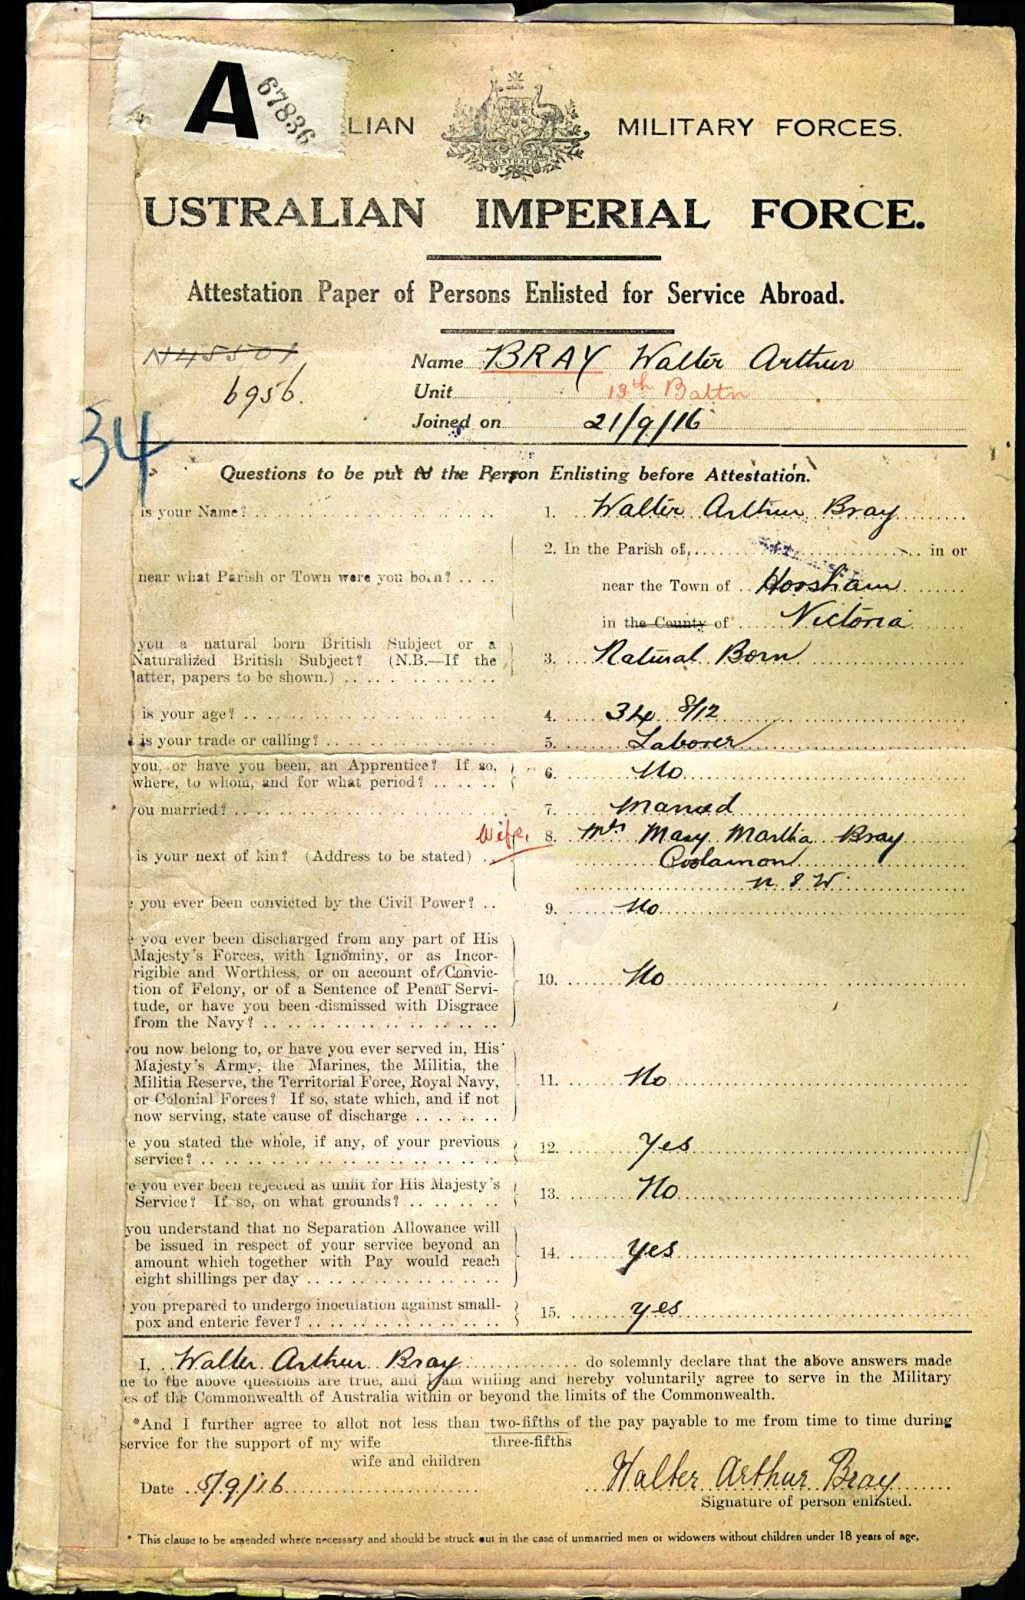 A 67836
LIAN MILITARY FORCES.
USTRALIAN IMPERIAL FORCE.
Attestation Paper of Persons Enlisted for Service Abroad.
N45501
Name BRAY Walter Arthur
6956.
Unit 13th Battn
Joined on 21/9/16
34
Questions to be put to the Person Enlisting before Attestation.
is your Name? 1. Walter Arthur Bray
2. In the Parish of, in or
near what Parish or Town were you born? near the Town of Horsham
in the County of Victoria
you a natural born British Subject or a
Naturalized British Subject? (N.B.—If the 3. Natural Born
latter, papers to be shown.)
is your age? 4. 34 8/12
is your trade or calling? 5. Laborer
you, or have you been, an Apprentice? If so, 6. No
where, to whom, and for what period?
you married? 7. Married
Wife. 8. Mrs Mary Martha Bray
is your next of kin? (Address to be stated) Coolamon
N S W
you ever been convicted by the Civil Power? 9. No
you ever been discharged from any part of His
Majesty's Forces, with Ignominy, or as Incor-
rigible and Worthless, or on account of Convic-
tion of Felony, or of a Sentence of Penal Servi- 10. No
tude, or have you been dismissed with Disgrace
from the Navy?
you now belong to, or have you ever served in, His
Majesty's Army, the Marines, the Militia, the
Militia Reserve, the Territorial Force, Royal Navy, 11. No
or Colonial Forces? If so, state which, and if not
now serving, state cause of discharge
e you stated the whole, if any, of your previous 12. Yes
service?
e you ever been rejected as unfit for His Majesty's 13. No
Service? If so, on what grounds?
you understand that no Separation Allowance will
be issued in respect of your service beyond an
amount which together with Pay would reach 14. Yes
eight shillings per day
you prepared to undergo inoculation against small- 15. Yes
pox and enteric fever?
I, Walter Arthur Bray do solemnly declare that the above answers made
me to the above questions are true, and I am willing and hereby voluntarily agree to serve in the Military
es of the Commonwealth of Australia within or beyond the limits of the Commonwealth.
*And I further agree to allot not less than two-fifths of the pay payable to me from time to time during
service for the support of my wife three-fifths
wife and children
Date 5/9/16 Walter Arthur Bray
Signature of person enlisted.
* This clause to be amended where necessary and should be struck out in the case of unmarried men or widowers without children under 18 years of age.